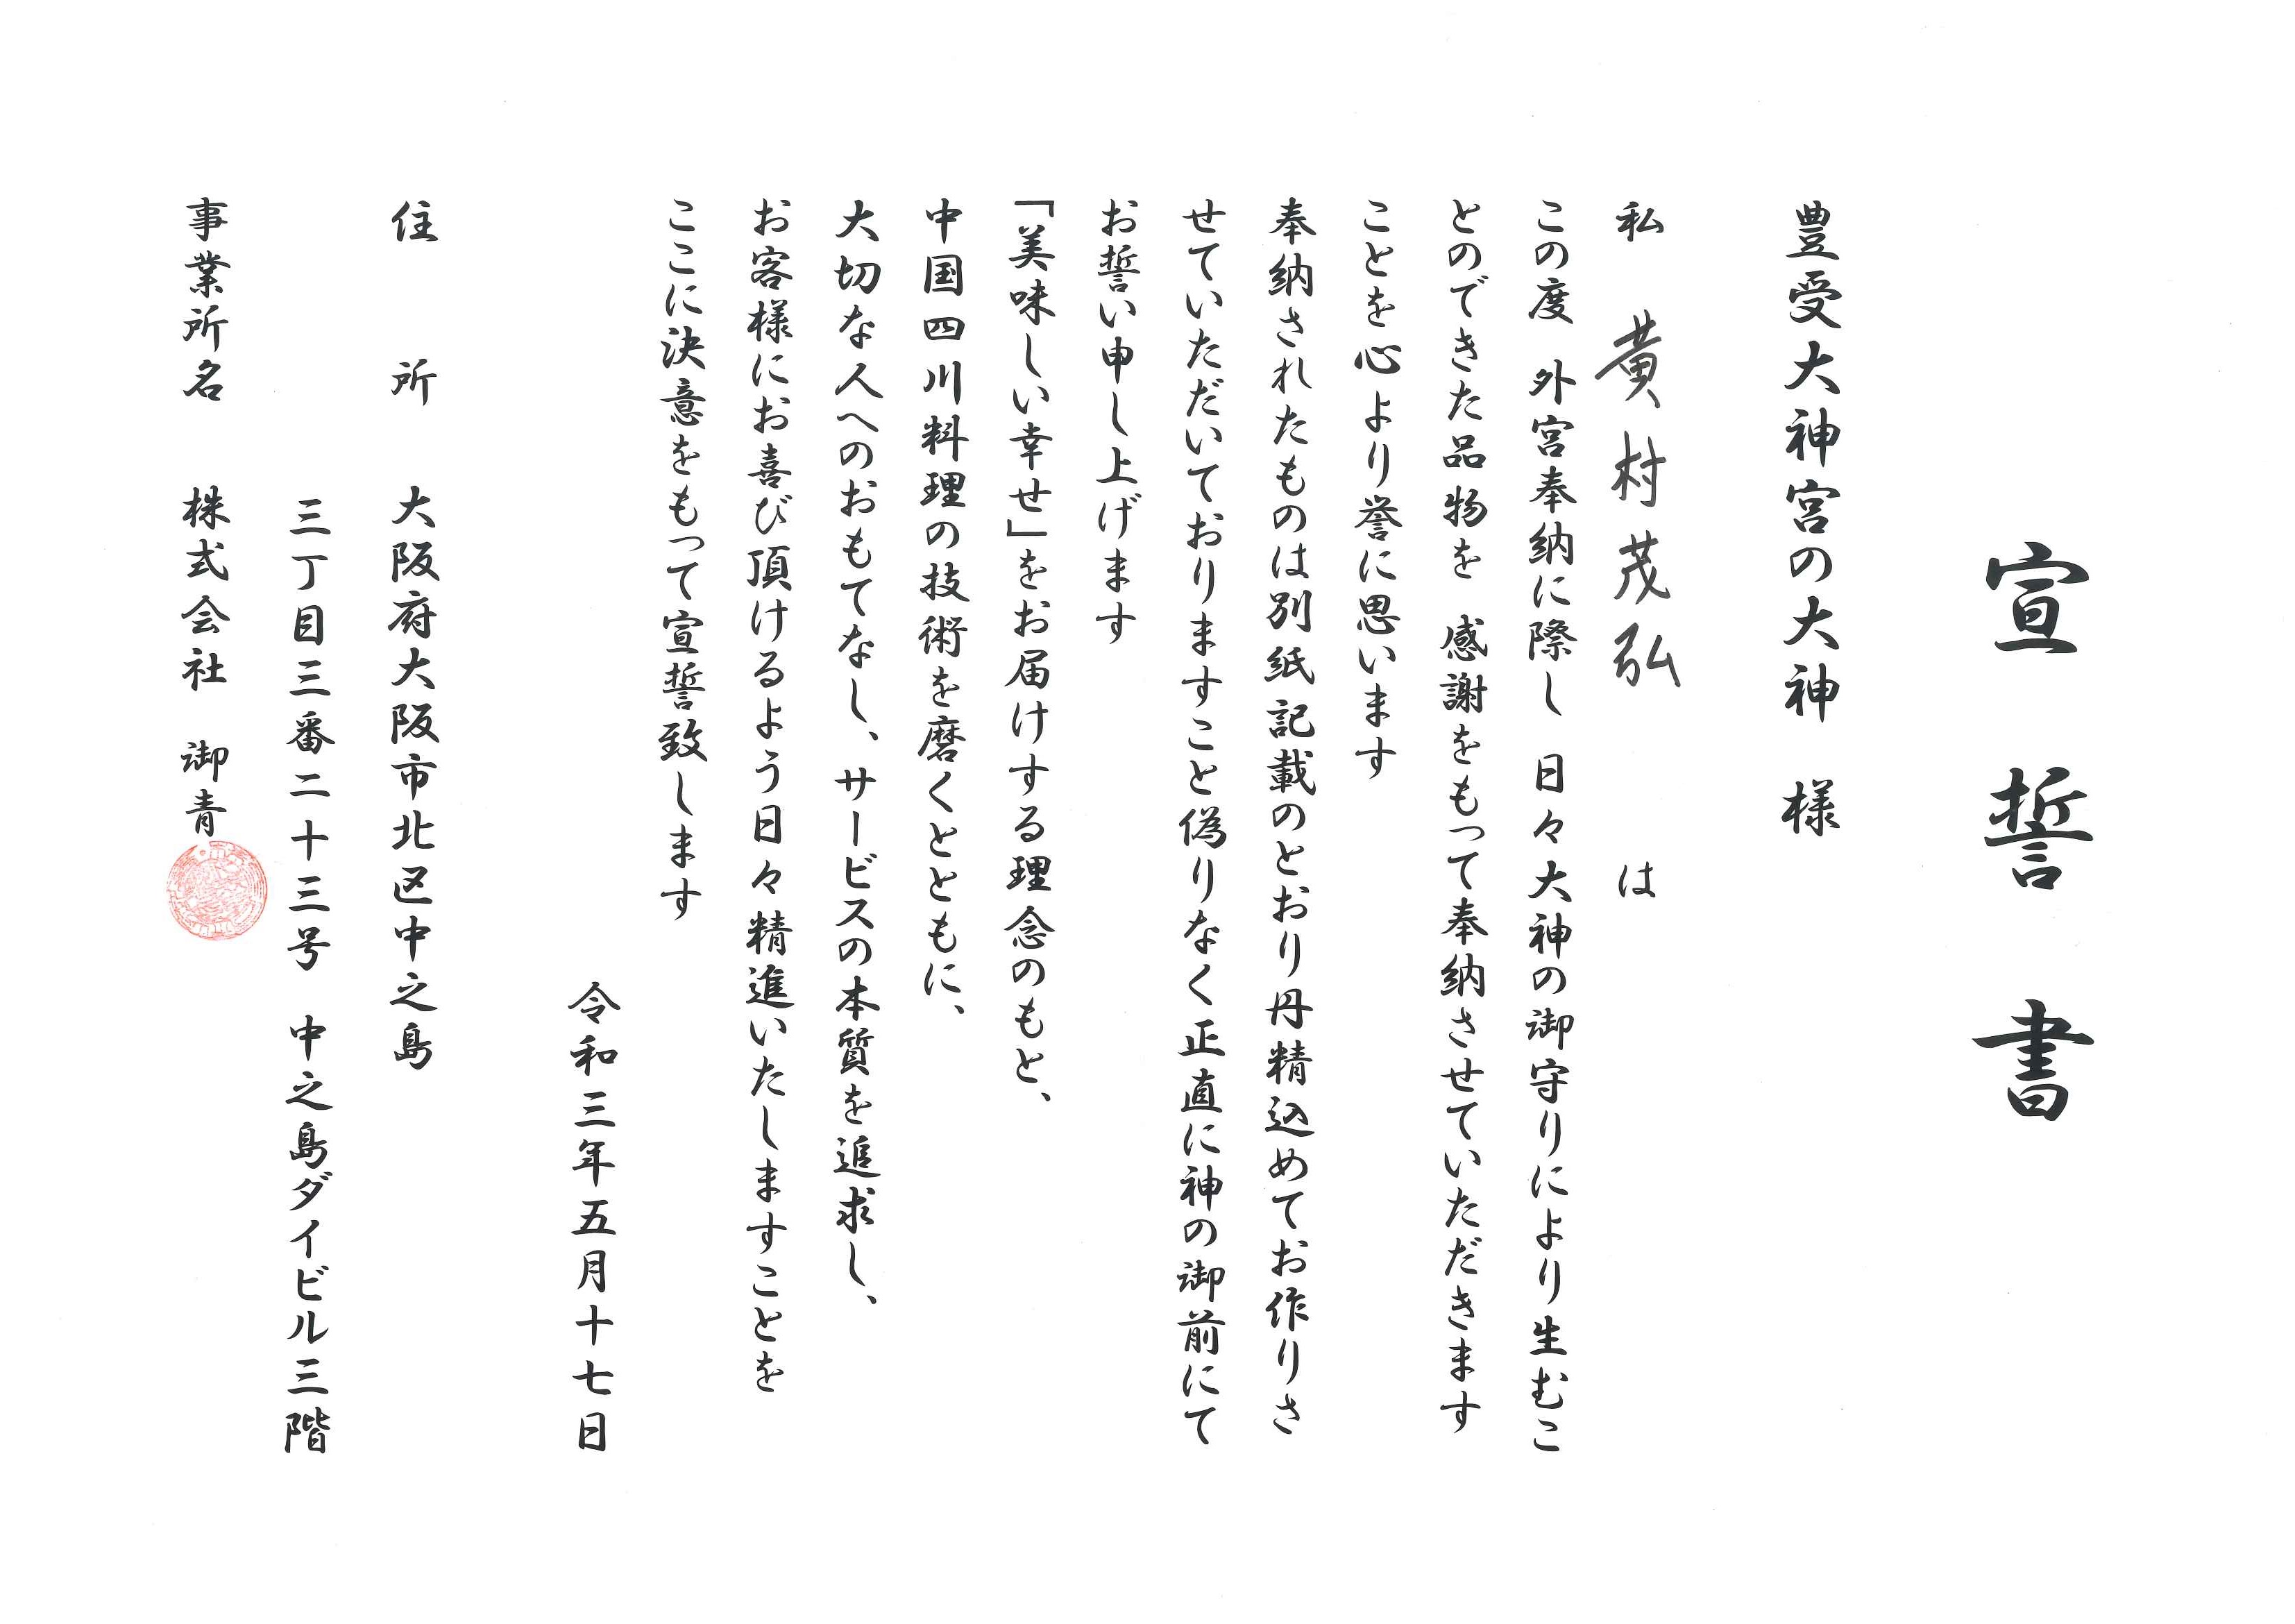 宣誓書
豊受大神宮の大神　様
私　黄村茂弘　は
この度　外宮奉納に際し　日々大神の御守りにより生むこ
とのできた品物を　感謝をもって奉納させていただきます
ことを心より誉に思います
奉納されたものは別紙記載のとおり丹精込めてお作りさ
せていただいておりますこと偽りなく正直に神の御前にて
お誓い申し上げます
「美味しい幸せ」をお届けする理念のもと、
中国四川料理の技術を磨くとともに、
大切な人へのおもてなし、サービスの本質を追求し、
お客様にお喜び頂けるよう日々精進いたしますことを
ここに決意をもって宣誓致します
令和三年五月十七日
住　所　大阪府大阪市北区中之島
三丁目三番二十三号　中之島ダイビル三階
事業所名　株式会社　御青